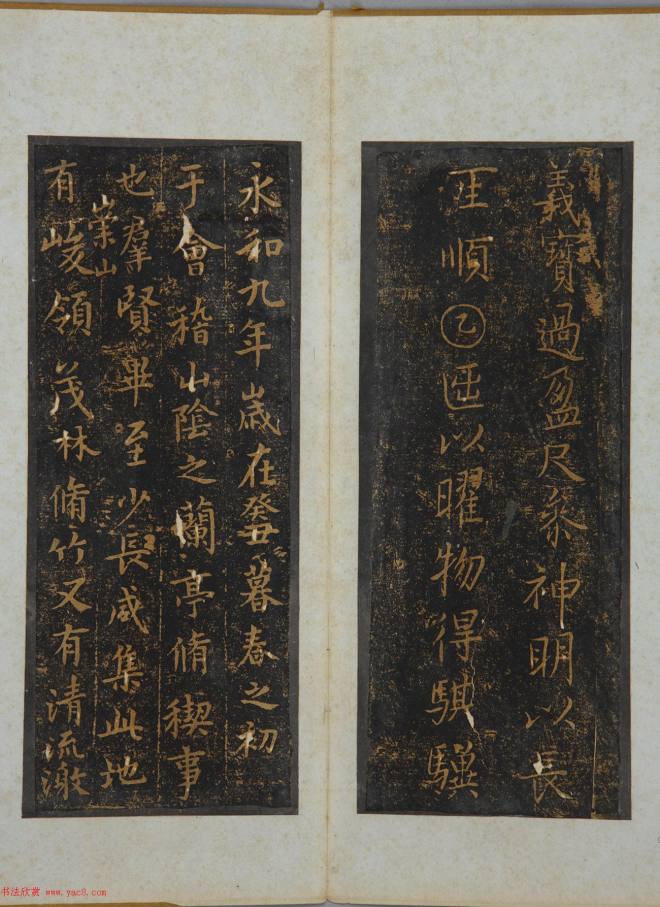 義寶過盈尺參神明以長
順乙以曜物得騏驥
永和九年歲在癸丑暮春之初
于會稽山陰之蘭亭脩稧事
也羣賢畢至少長咸集此地
有崇山峻領茂林脩竹又有清流激
书法欣赏 www.yac8.com